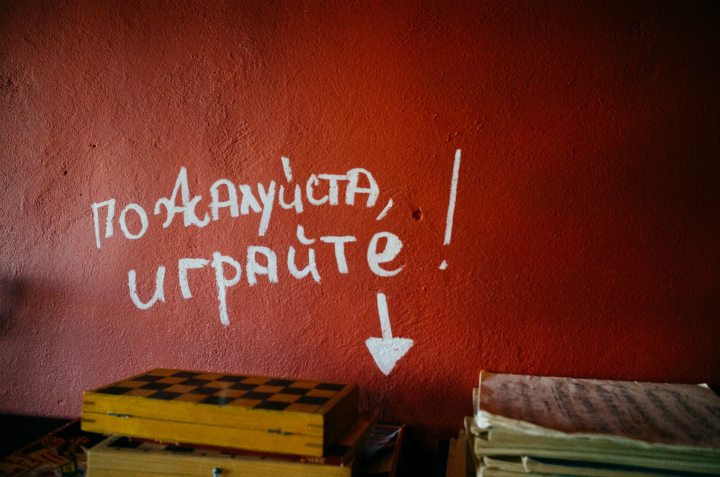 пожалуйста,
играйте!